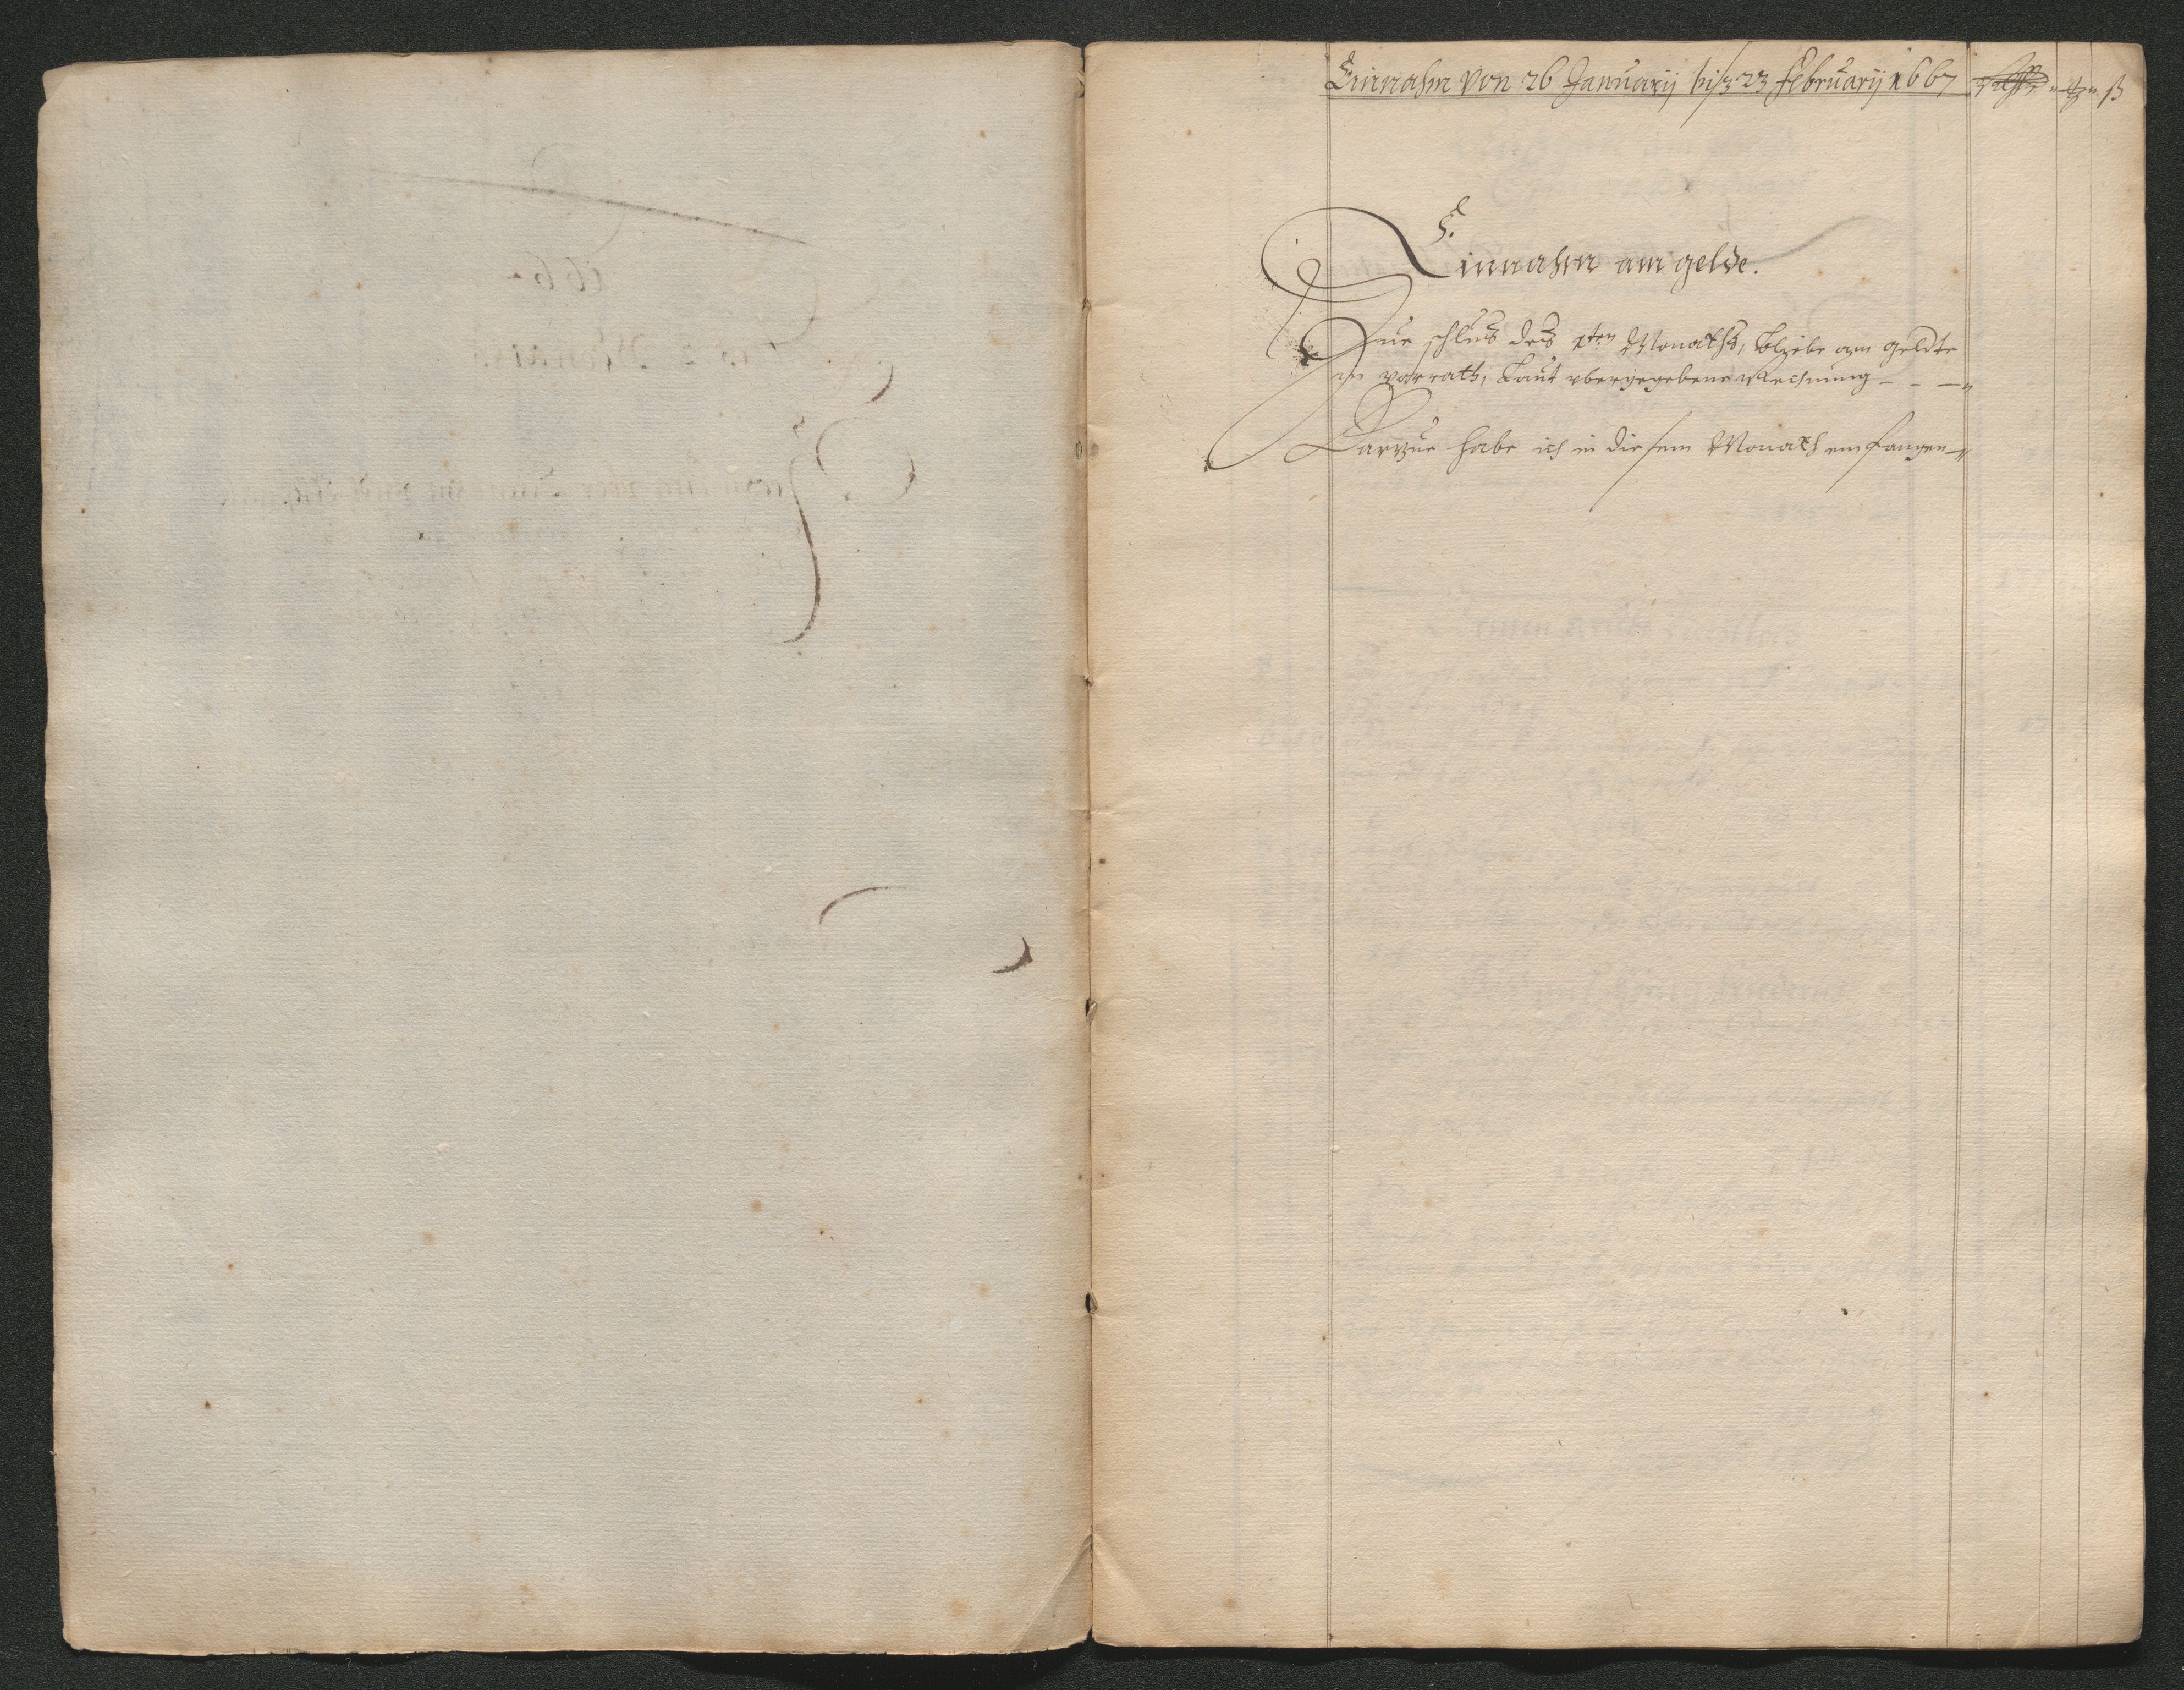 Einnahm von 26 Januarij biß 23 Februarij 1667
Einnahm am gelde.
Zue schluß deß 1ten Monaths, bliebe am geldte
in vorrath, Laut vbergegebene Rechnung - - -
Darzue habe ich in diesem Monath empfangen -